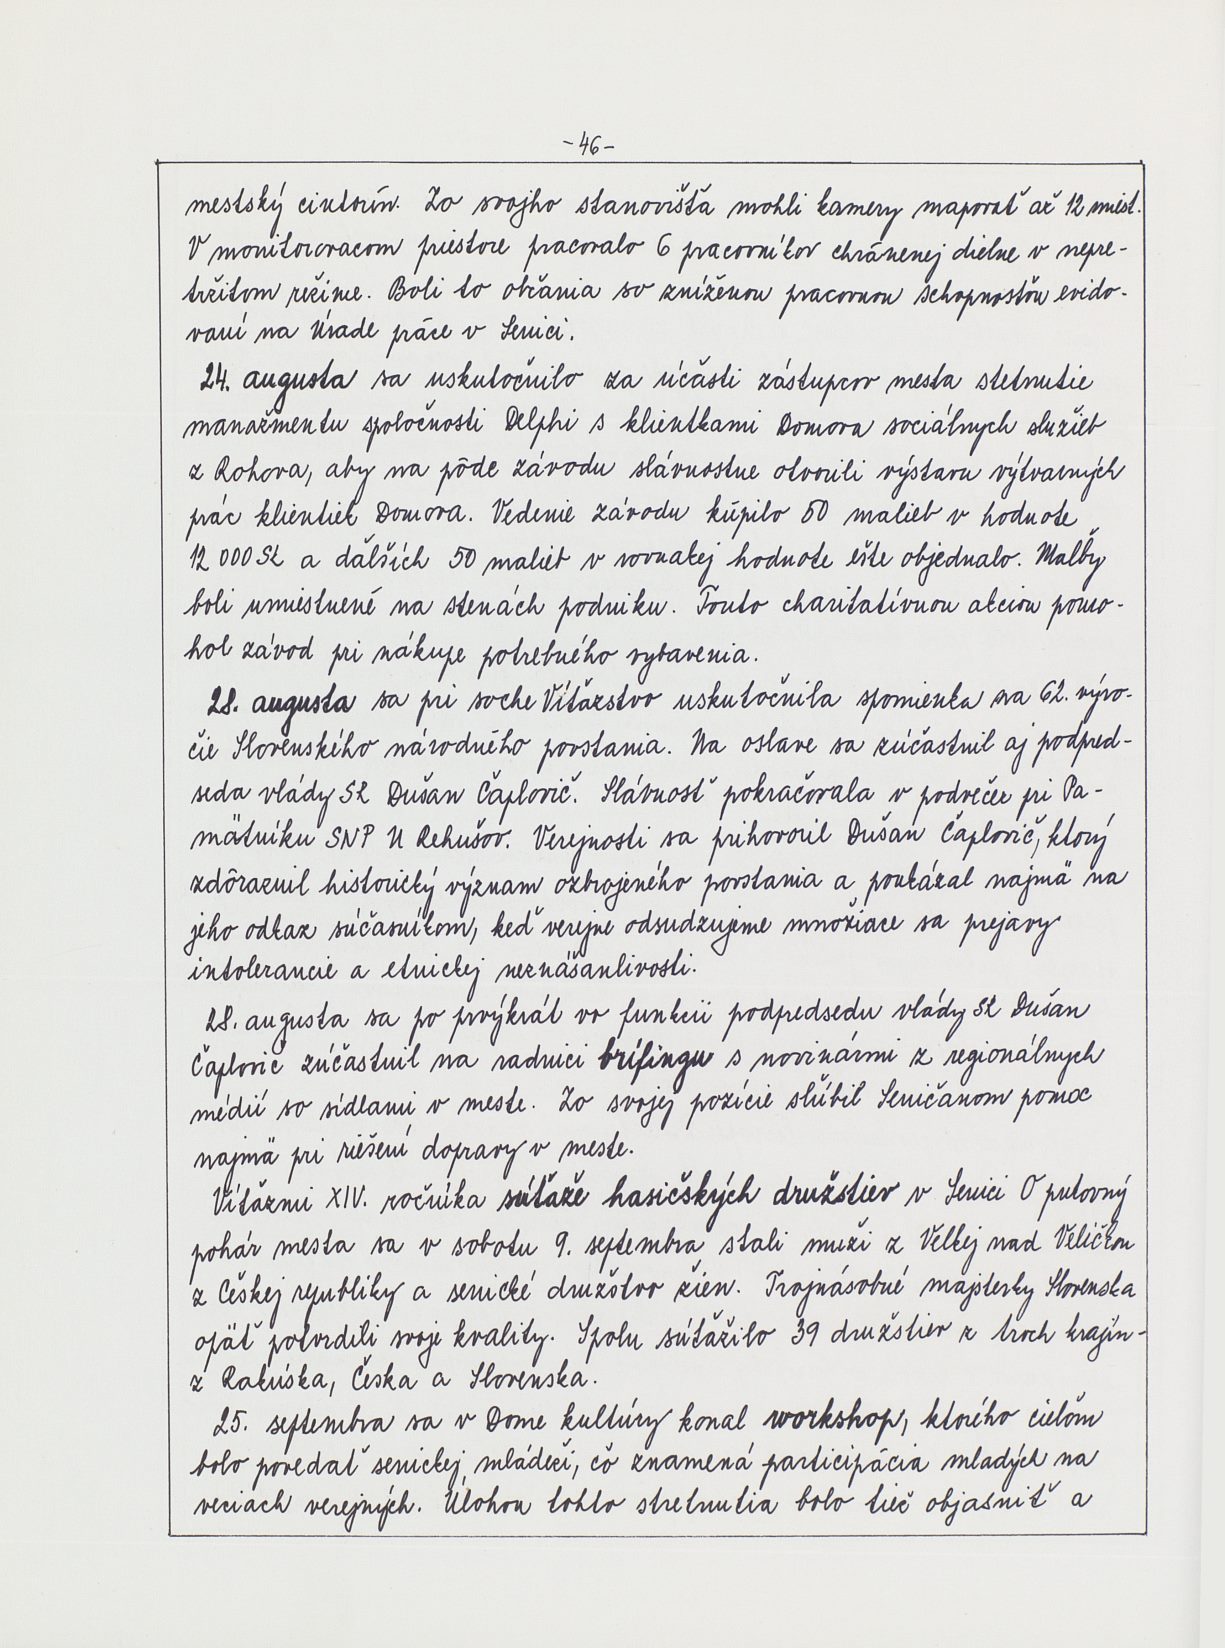 -46-
mestský cintorín. Zo svojho stanovišťa mohli kamery mapovať až 12 miest.
V monitorovacom priestore pracovalo 6 pracovníkov chránenej dielne v nepre-
tržitom režime. Boli to občania so zníženou pracovnou schopnosťou evido-
vaní na Úrade práce v Senici.
24. augusta sa uskutočnilo za účasti zástupcov mesta stetnutie
manažmentu spoločnosti Delphi s klientkami Domova sociálnych služieb
z Rohova, aby na pôde závodu slávnostne otvorili výstavu výtvarných
prác klientiek Domova. Vedenie závodu kúpilo 50 malieb v hodnote
12 000 Sk a ďalších 50 malieb v rovnakej hodnote ešte objednalo. Maľby
boli umiestnené na stenách podniku. Touto charitatívnou akciou pomo-
hol závod pri nákupe potrebného vybavenia.
28. augusta sa pri soche Víťazstvo uskutočnila spomienka na 62. výro-
čie Slovenského národného povstania. Na oslave sa zúčastnil aj podpred-
seda vlády SR Dušan Čaplovič. Slávnosť pokračovala v podvečer pri Pa-
mätníku SNP U Rehušov. Verejnosti sa prihovoril Dušan Čaplovič, ktorý
zdôraznil historický význam ozbrojeného povstania a poukázal najmä na
jeho odkaz súčasníkom, keď verejne odsudzujeme množiace sa prejavy
intolerancie a etnickej neznášanlivosti.
28. augusta sa po prvýkrát vo funkcii podpredsedu vlády SR Dušan
Čaplovič zúčastnil na radnici brífingu s novinármi z regionálnych
médií so sídlami v meste. Zo svojej pozície sľúbil Seničanom pomoc
najmä pri riešení dopravy v meste.
Víťazmi XIV. ročníka súťaže hasičských družstiev v Senici O putovný
pohár mesta sa v sobotu 9. septembra stali muži z Veľkej nad Veličkou
z Českej republiky a senické družstvo žien. Trojnásobné majsterky Slovenska
opäť potvrdili svoje kvality. Spolu súťažilo 39 družstiev z troch krajín-
z Rakúska, Česka a Slovenska.
25. septembra sa v Dome kultúry konal workshop, ktorého cieľom
bolo povedať senickej mládeži, čo znamená participácia mladých na
veciach verejných. Úlohou tohto stretnutia bolo tiež objasniť a